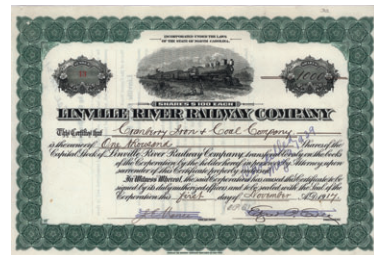 INCORPORATED UNDER THE LAWS
OF THE STATE OF NORTH CAROLINA.
1000
SHARES $100 EACH
LINVILLE RIVER RAILWAY COMPANY
This Certifies that Cranberry Iron & Coal Company
is the owner of One thousand Shares of the
Capital Stock of Linville River Railway Company, transferable only on the books
of the Corporation by the holder thereof in person or by Attorney upon
surrender of this Certificate properly endorsed.
In Witness Whereof, the said Corporation has caused this Certificate to be
signed by its duly authorized officers and to be sealed with the Seal of the
Corporation this first day of November A.D. 1917